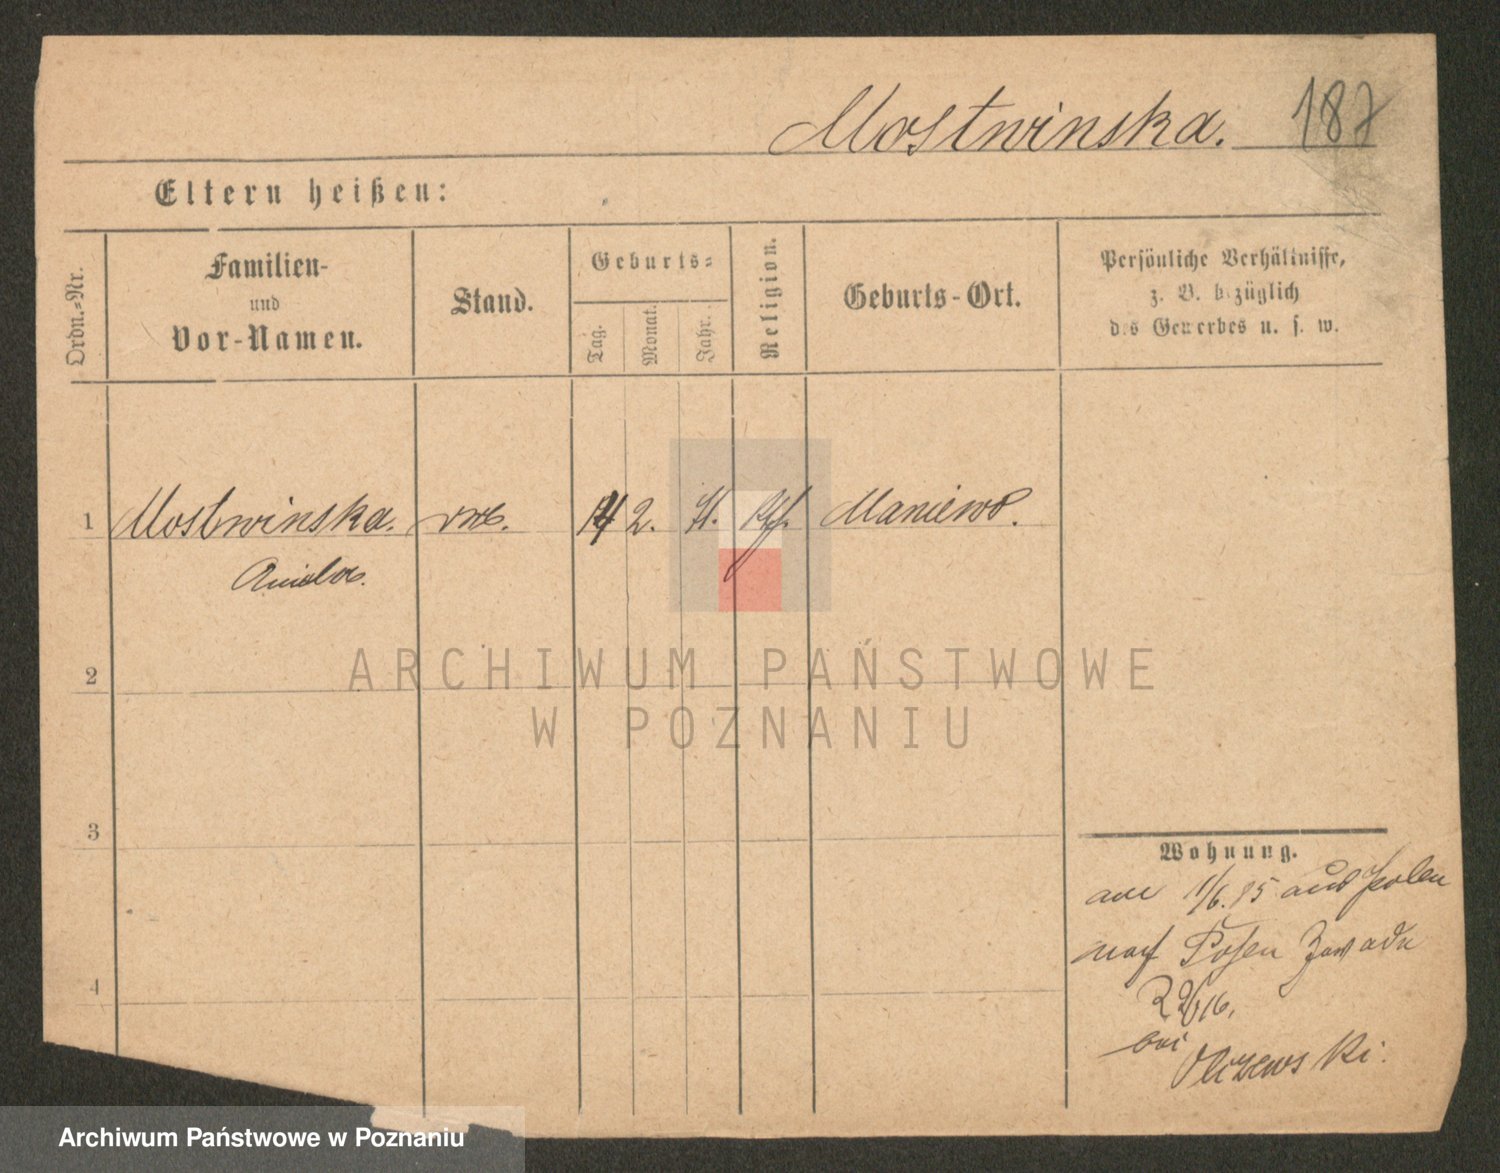 Mostwinska. 187
Eltern heißen:
Ordn.-Nr.
Familien-
und
Vor-Namen.
Stand.
Geburts-
Tag.
Monat.
Jahr.
Religion.
Geburts-Ort.
Persönliche Verhältnisse,
z. B. bezüglich
des Gewerbes u. s. w.
1 Mostwinska. 2. Maniewo.
2
3
4
Wohnung.
1/6. 95 aus Polen
nach Posen Zawade
bei
ARCHIWUM PAŃSTWOWE
W POZNANIU
Archiwum Państwowe w Poznaniu